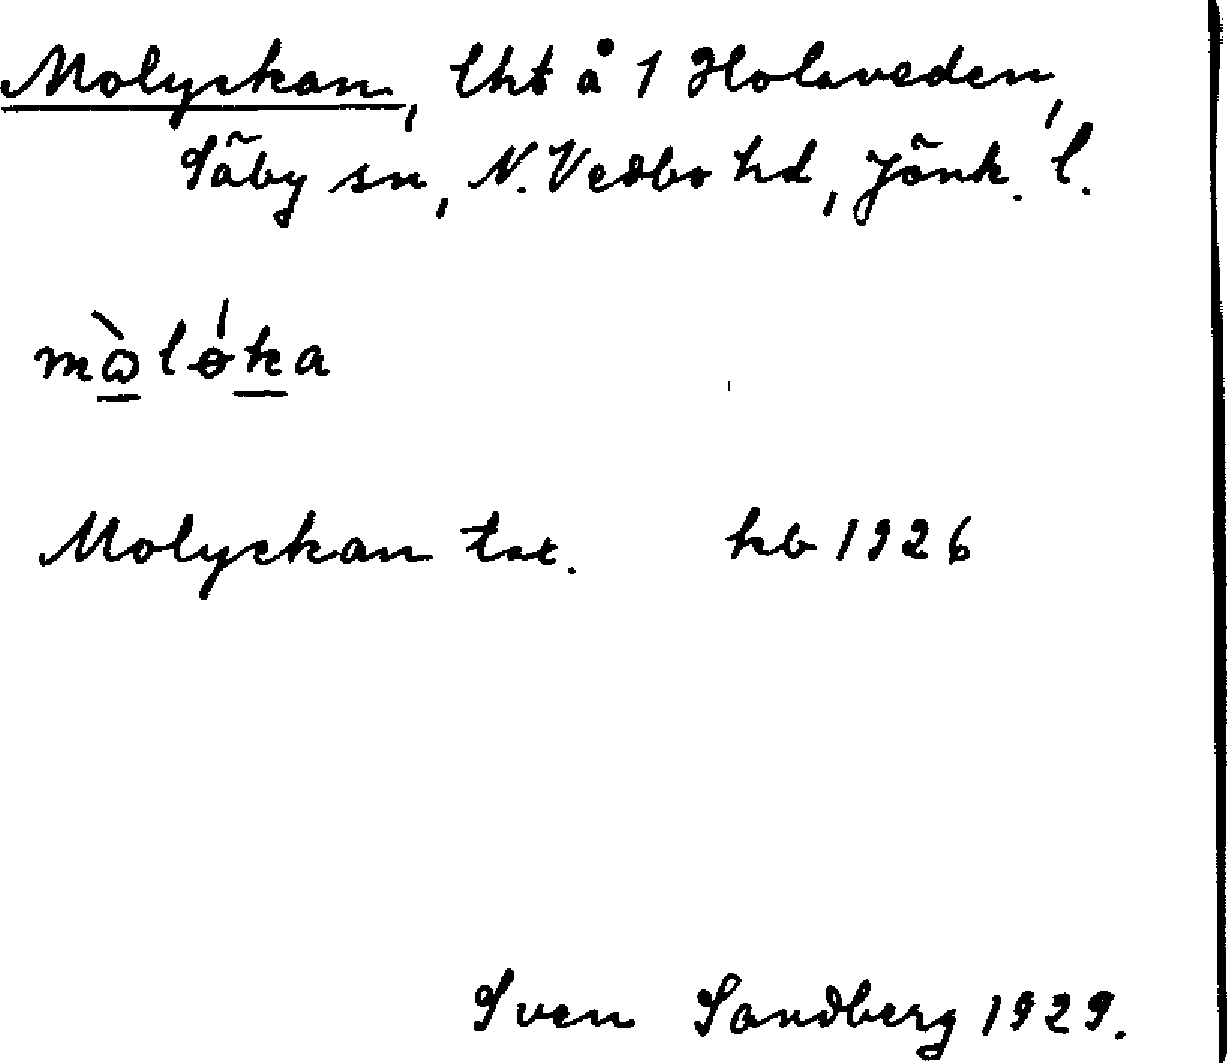 Molyckan, lht å 1 Holaveden,
Säby sn, N. Vedbo hd, Jönk. l.
mὼlǿka
Molyckan tax. hb 1926
Sven Sandberg 1929.